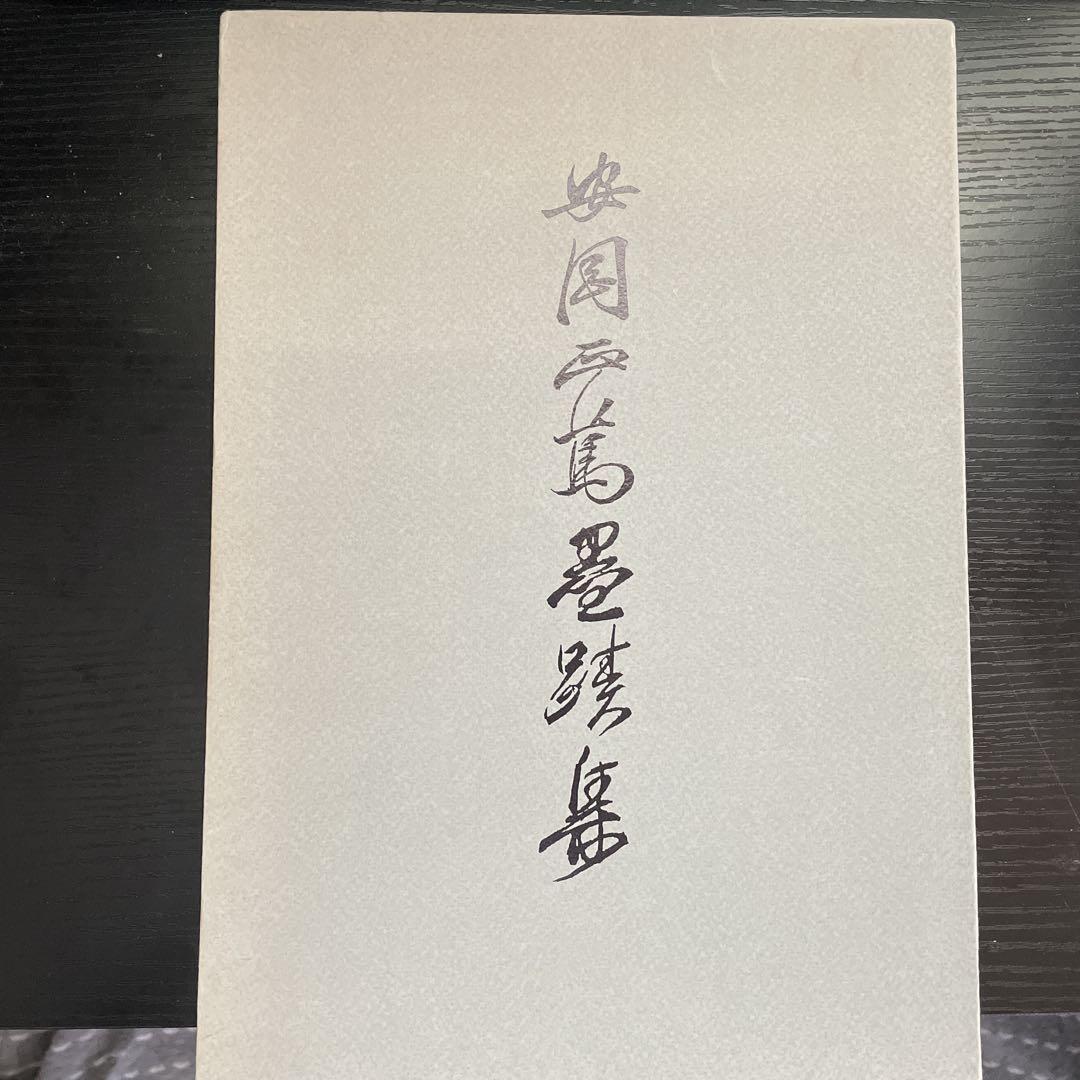 安岡正篤墨蹟集